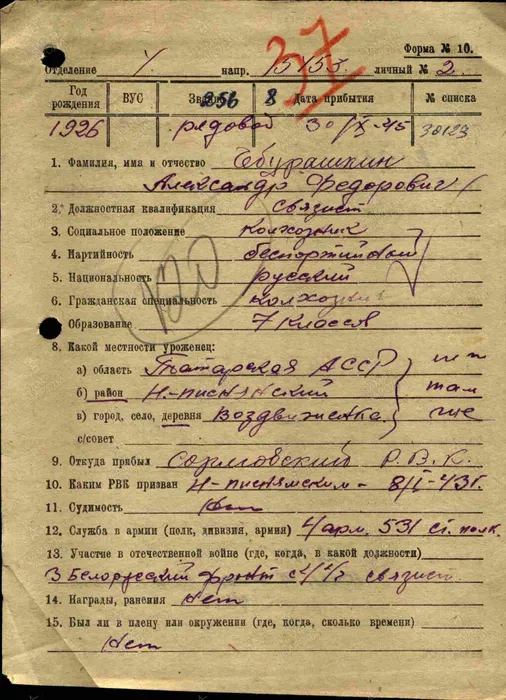 37
Форма № 10.
Отделение напр. 15153. личный № 2
Год рождения ВУС Звание 256 8 Дата прибытия № списка
1926 рядовой 30/IX-45 30123
1. Фамилия, имя и отчество Чбурашкин
Александр Федорович
2. Должностная квалификация связист
3. Социальное положение колхозник
4. Партийность беспортийный
5. Национальность русский
6. Гражданская специальность колхозник
Образование 7 классов
8. Какой местности уроженец:
а) область Татарская АССР
б) район Н-писнянский
в) город, село, деревня Воздвиженка
с/совет
9. Откуда прибыл Сормовский Р.В.К.
10. Каким РВК призван Н-писнямским - 8/I-43г.
11. Судимость Нет
12. Служба в армии (полк, дивизия, армия) 4 арм. 531 ст. полк.
13. Участие в отечественной войне (где, когда, в какой должности)
3 Белорусский фронт с связист
14. Награды, ранения Нет
15. Был ли в плену или окружении (где, когда, сколько времени)
Нет